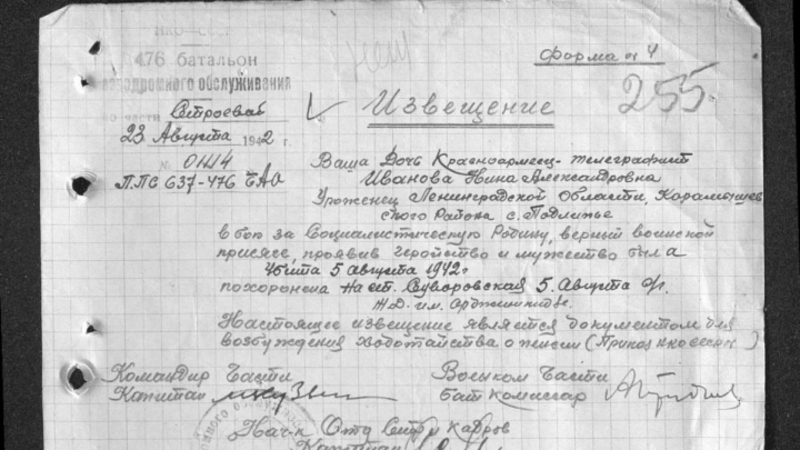 НКО-СССР
476 батальон
аэродромного обслуживания
Строевая
23 Августа 1942 г.
№ 0114
П.П.С 637-476 БАО
Форма № 4
255.
Извещение
Ваша Дочь Красноармеец-телеграфист
Иванова Нина Александровна
Уроженец Ленинградской Области, Карамышев
ского Района с. Подлипье
в бою за Социалистическую Родину, верный воинской
присяге, проявив геройство и мужество была
убита 5 Августа 1942г
похоронена на ст. Суворовская 5. Августа
Ж.Д. им. Орджоникидзе.
Настоящее извещение является документом для
возбуждения ходатайства о пенсии (Приказ НКО СССР № )
Командир Части
Капитан
Военком Части
бат. Комиссар
Нач-к Отд Стр и кадров
Капитан